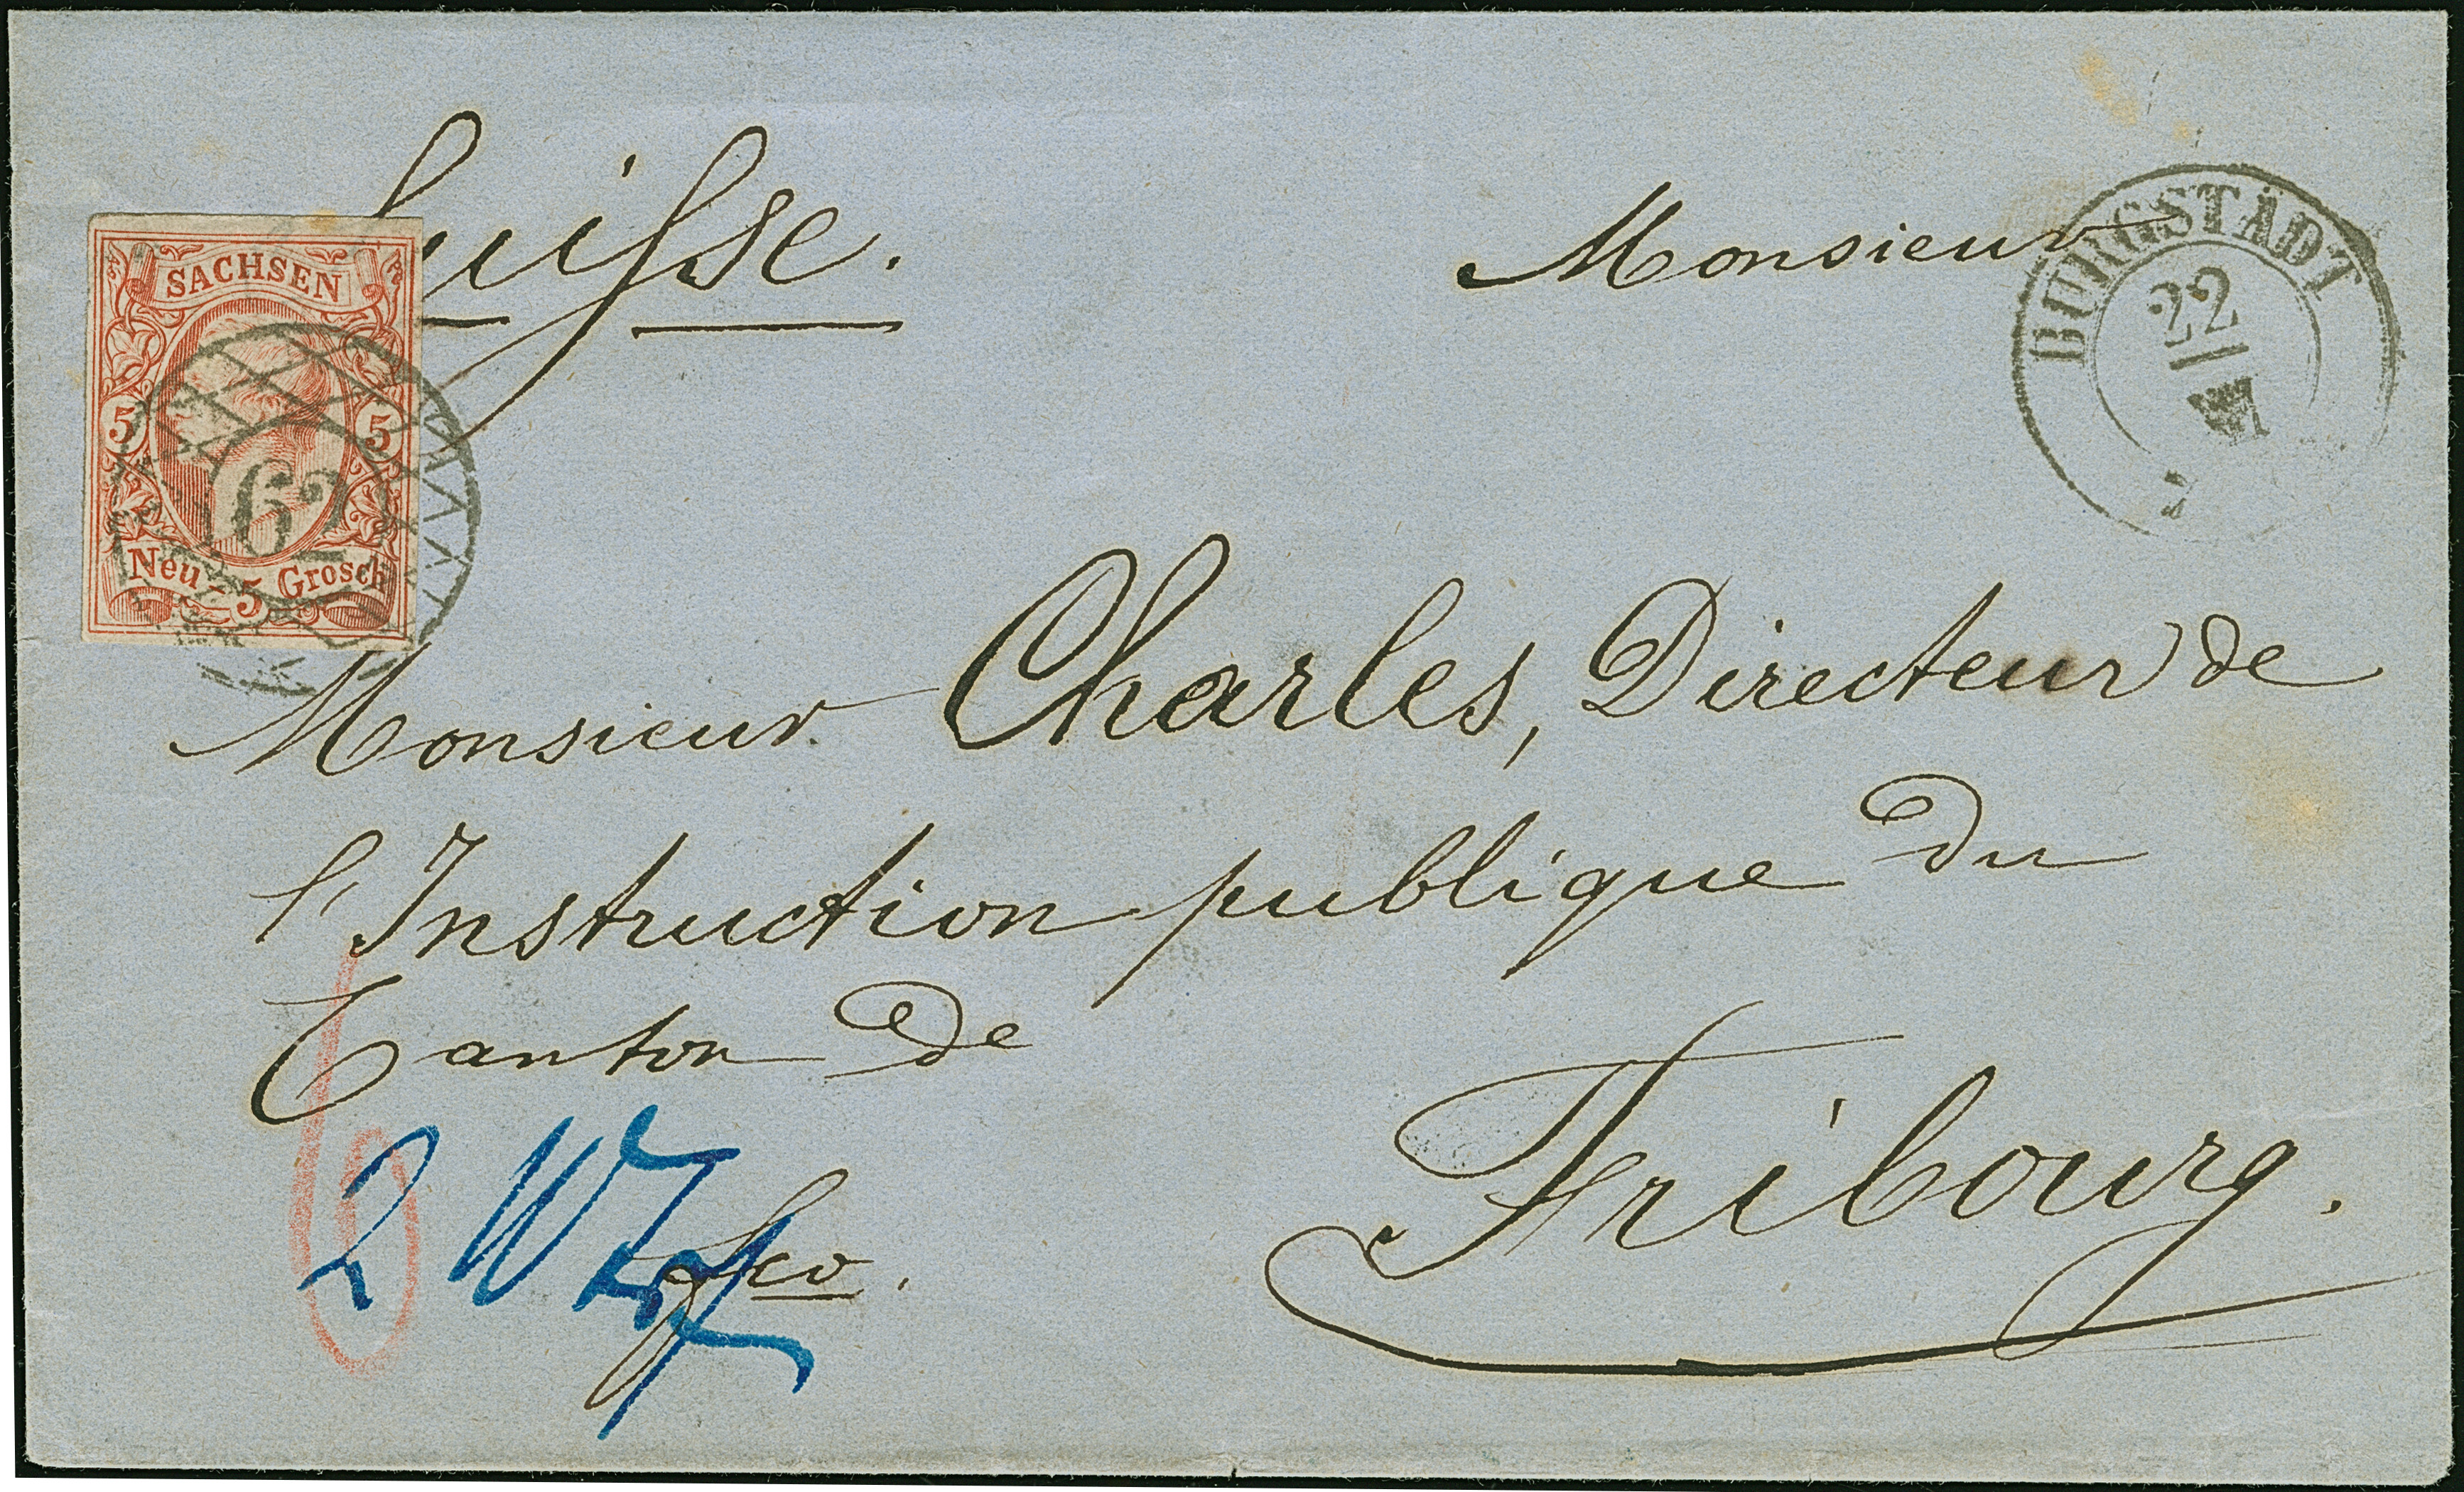 Suisse.
Monsieur
BURGSTÄDT
22
SACHSEN
5 5
62
Neu-5 Grosch
Monsieur Charles, Directeur de
l'Instruction publique du
Canton de
Fribourg.
6
2 Wf
fco.